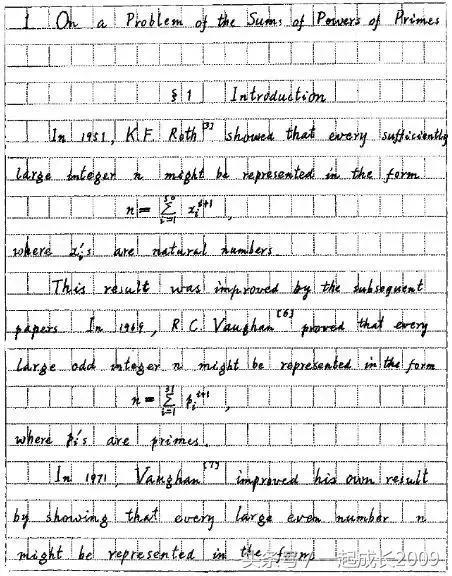 I On a Problem of the Sums of Powers of Primes
§1 Introduction
In 1951, K.F. Roth[3] showed that every sufficiently
large integer n might be represented in the form
n = ∑_{i=1}^{50} x_i^{i+1},
where x_i's are natural numbers
This result was improved by the subsequent
papers In 1969, R.C. Vaughan[6] proved that every
large odd integer n might be represented in the form
n = ∑_{i=1}^{31} p_i^{i+1},
where p_i's are primes.
In 1971, Vaughan[7] improved his own result
by showing that every large even number n
might be represented in the form
头条号 / 一起成长2009